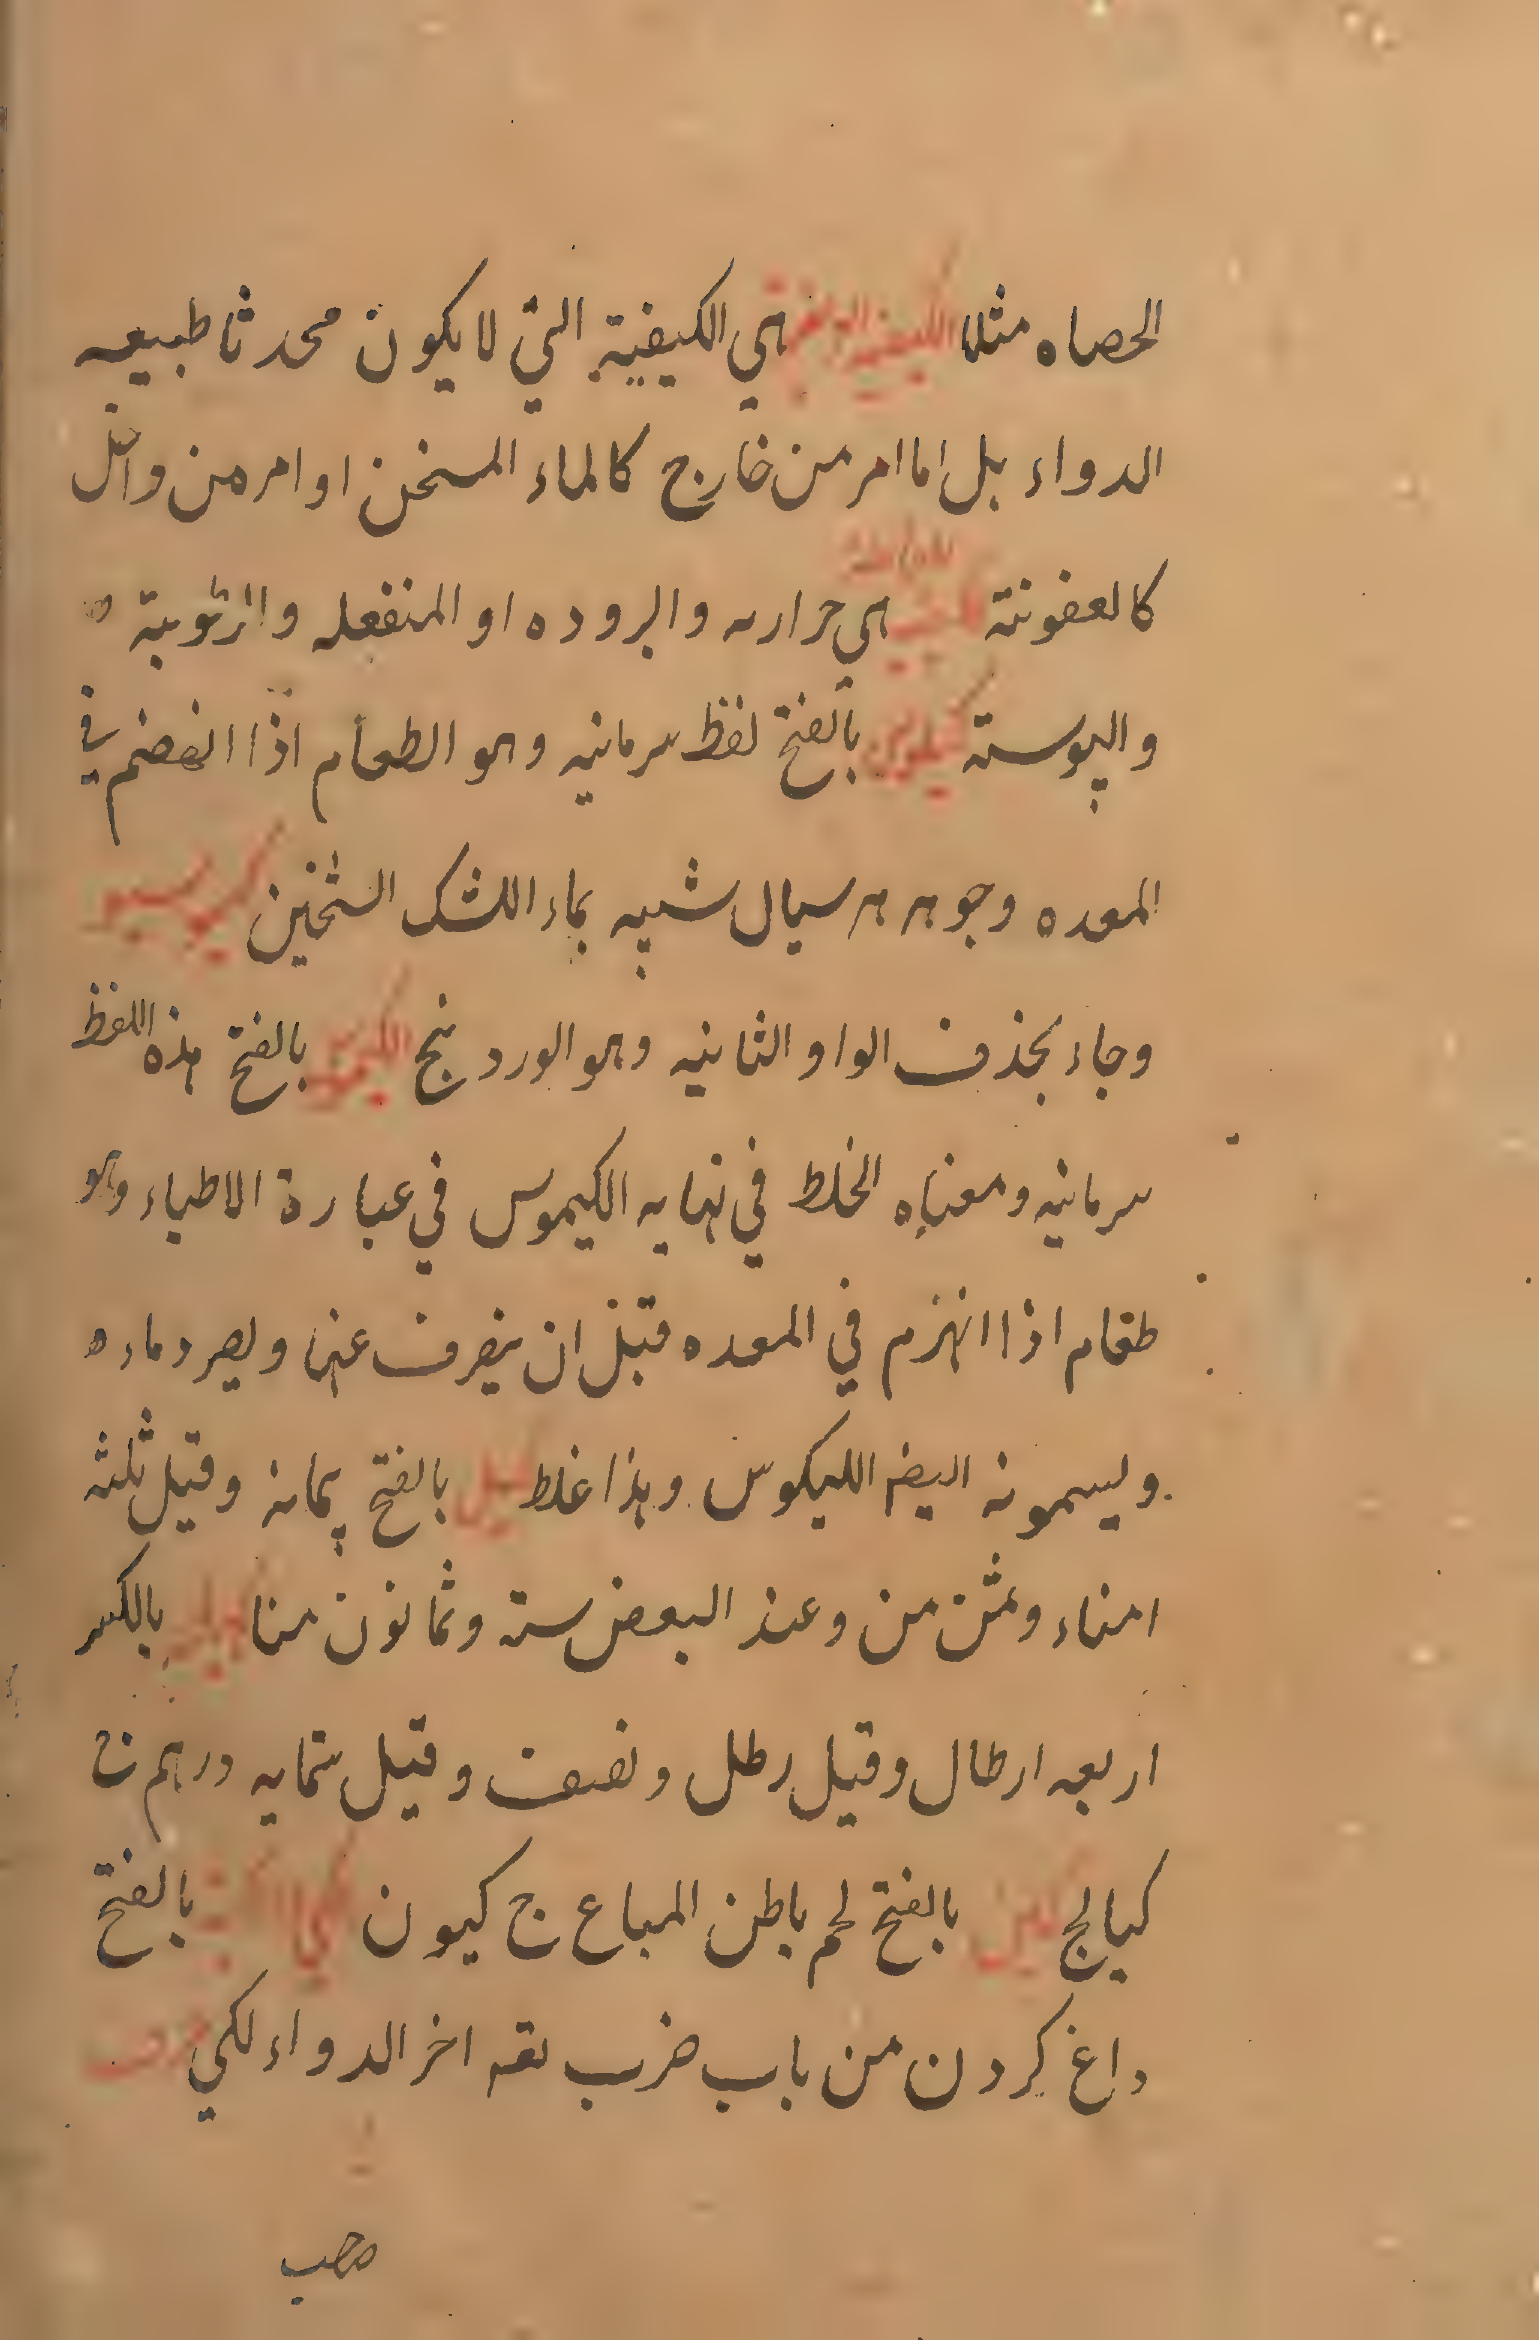 الحصاه مثلا الكيفية هي الكيفية التي لا يكون محدثا طبيعه
الدواء بل اما امر من خارج كالماء المسخن او امر من داخل
كالعفونته هي حراره والبروده او المنفعله والرطوبية
واليبوسته كيلوس بالفتح لفظ سرمانيه وهو الطعام اذا انهضم في
المعده وجوهر هر سيال شبيه بماء الكشك الثخين
وجاء بحذف الواو الثانيه وهو الوردينج الكيموس بالفتح هذه اللفظ
سرمانيه ومعناه الخلط في نهايه الكيموس في عبارة الاطباء وهو
طعام اذا انهزم في المعده قبل ان ينصرف عنها ويصر دماء ه
ويسمونه اليضم الليكوس وهذا غلط كيل بالفتح پيمانه وقيل ثلثه
امناء وثمن من وعند البعض سته وثمانون منا بالكسر
اربعه ارطال وقيل رطل ونصف وقيل ستمايه درهم ج
كيالج كين بالفتح لحم باطن المباع ج كيون بالفتح
داغ كردن من باب ضرب يقه اخر الدواء لكي